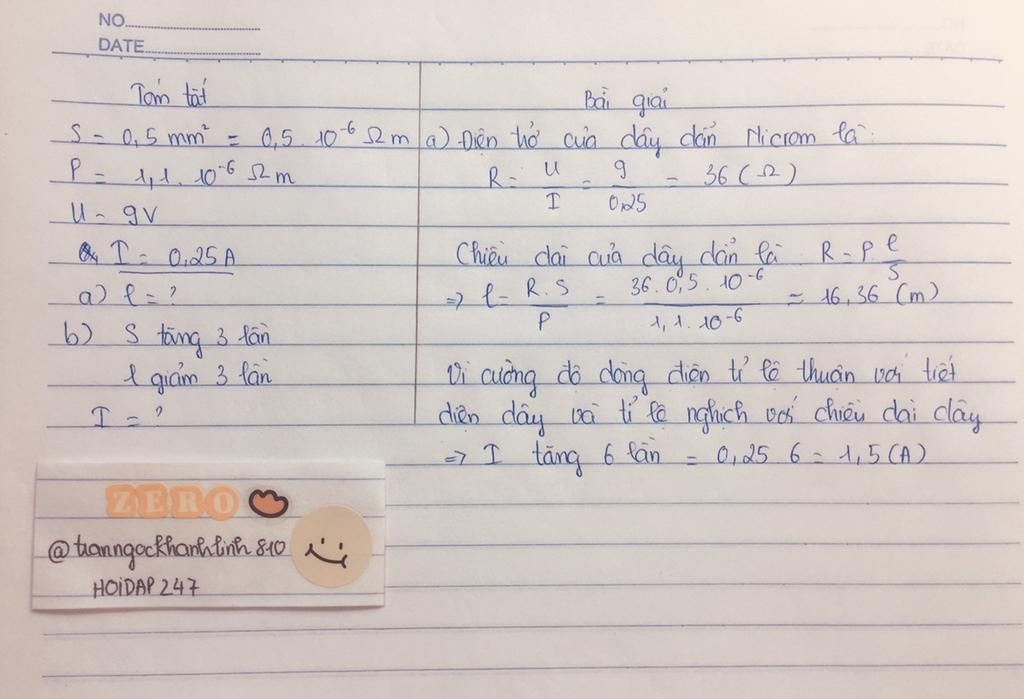 NO.
DATE
Tóm tắt
S = 0,5 mm² = 0,5 . 10⁻⁶ Ωm
P = 1,1. 10⁻⁶ Ωm
U = 9V
I = 0,25A
a) l = ?
b) S tăng 3 lần
l giảm 3 lần
I = ?
Bài giải
a) Điện trở của dây dẫn Nicrom là:
R = U/I = 9/0,25 = 36 (Ω)
Chiều dài của dây dẫn là: R = P. l/S
=> l = R.S/P = 36.0,5.10⁻⁶/1,1.10⁻⁶ = 16,36 (m)
Vì cường độ dòng điện tỉ lệ thuận với tiết
diện dây và tỉ lệ nghịch với chiều dài dây
=> I tăng 6 lần = 0,25 6 = 1,5 (A)
ZERO
@tranngockhanhlinh810
HOIDAP247